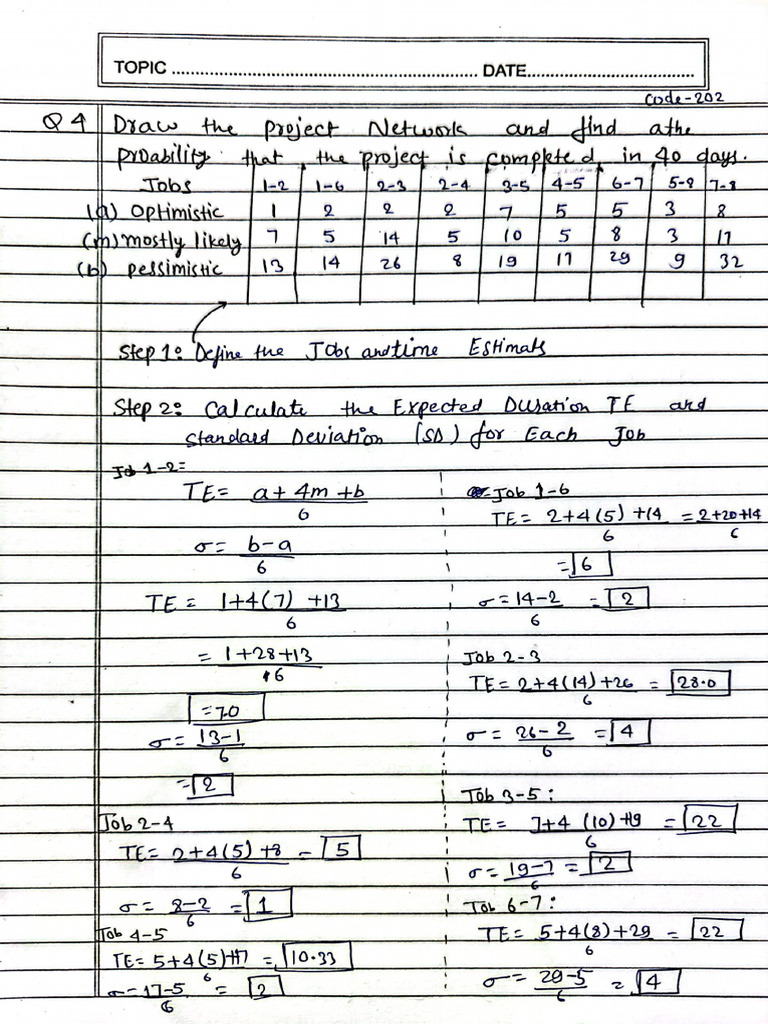 TOPIC ................................ DATE................................
Code-202
Q 4 Draw the project Network and find athe
probability that the project is completed in 40 days.
Jobs 1-2 1-6 2-3 2-4 3-5 4-5 6-7 5-8 7-8
(a) Optimistic 1 2 2 2 7 5 5 3 8
(m) mostly likely 7 5 14 5 10 5 8 3 17
(b) pessimistic 13 14 26 8 19 17 29 9 32
Step 1: Define the Jobs and time Estimats
Step 2: Calculate the Expected Duration TE and
Standard Deviation (SD) for Each Job
Job 1-2=
TE = a + 4m + b / 6
σ = b - a / 6
TE = 1+4(7) +13 / 6
= 1+28+13 / 6
= 7.0
σ = 13-1 / 6
= 2
Job 2-4
TE = 2+4(5)+8 / 6 = 5
σ = 8-2 / 6 = 1
Job 4-5
TE = 5+4(5)+17 / 6 = 10.33
σ = 17-5 / 6 = 2
Job 1-6
TE = 2+4(5)+14 / 6 = 2+20+14 / 6
= 6
σ = 14-2 / 6 = 2
Job 2-3
TE = 2+4(14)+26 / 6 = 28.0
σ = 26-2 / 6 = 4
Job 3-5:
TE = 7+4(10)+19 / 6 = 22
σ = 19-7 / 6 = 2
Job 6-7:
TE = 5+4(8)+29 / 6 = 22
σ = 29-5 / 6 = 4